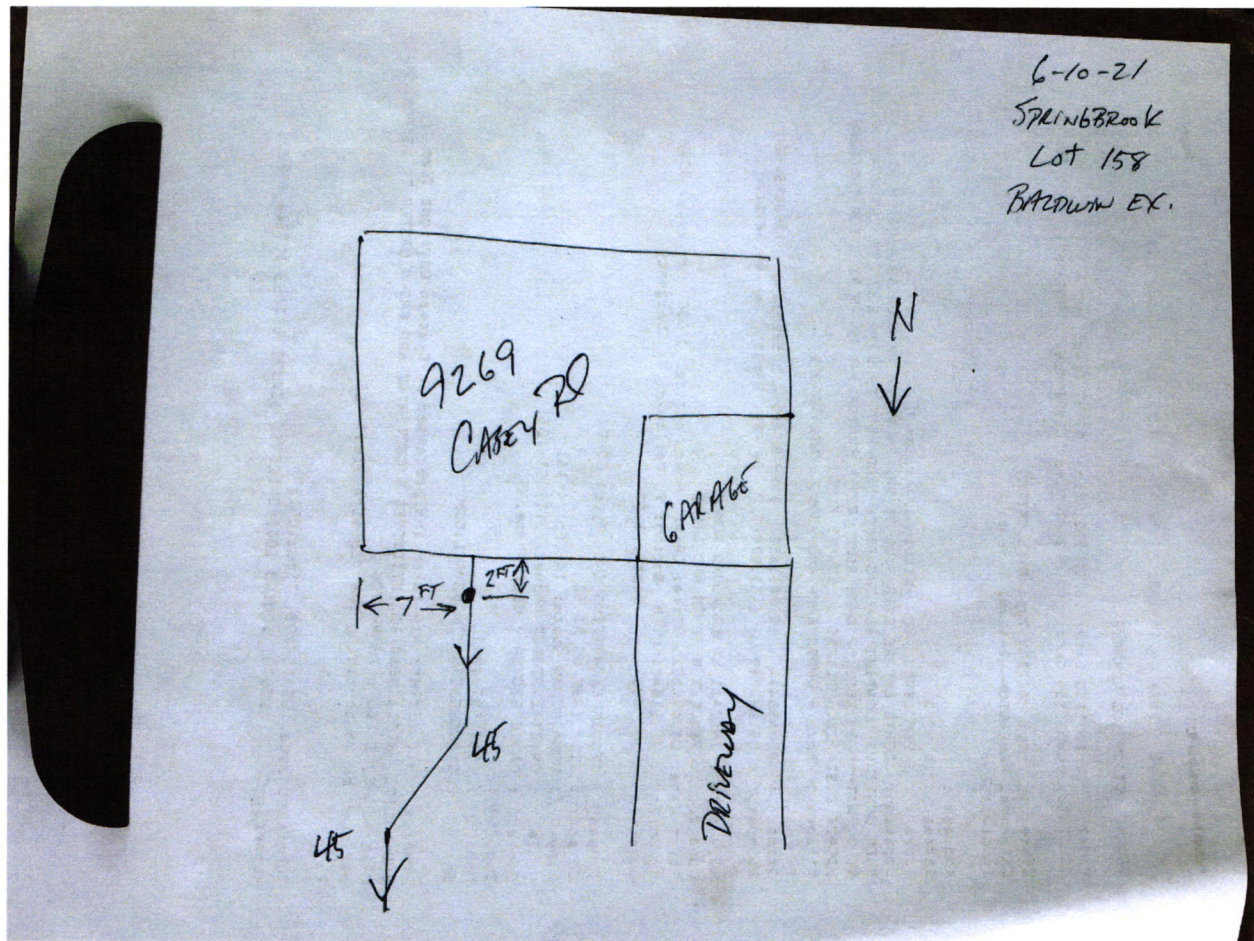 6-10-21
SPRINGBROOK
Lot 158
BALDWIN EX.
N
9269
CASEY RD
GARAGE
2 FT
7 FT
45
DRIVEWAY
45